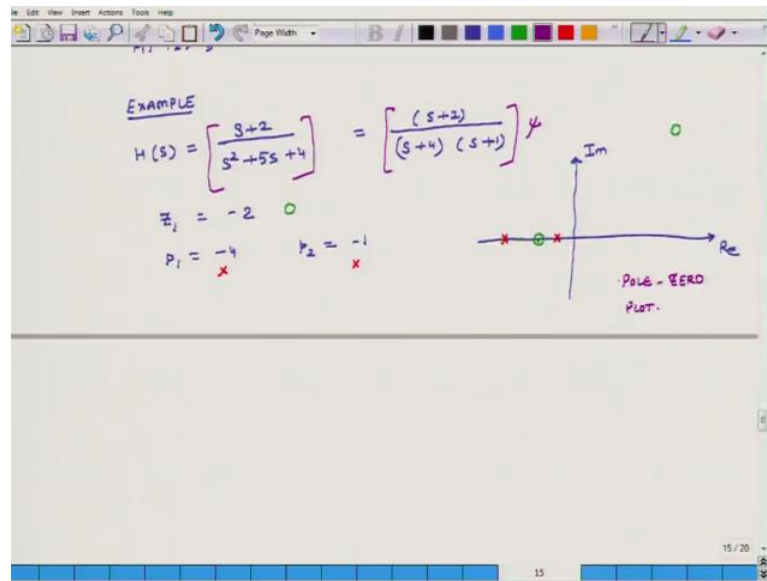 Edit View Insert Actions Tools Help
Page Width
EXAMPLE
H(S) = [ S+2 / S² + 5S + 4 ] = [ (S+2) / (S+4) (S+1) ]
Im
Z₁ = -2 O
P₁ = -4 P₂ = -1
x x
Re
POLE - ZERO
PLOT.
15 / 20
15